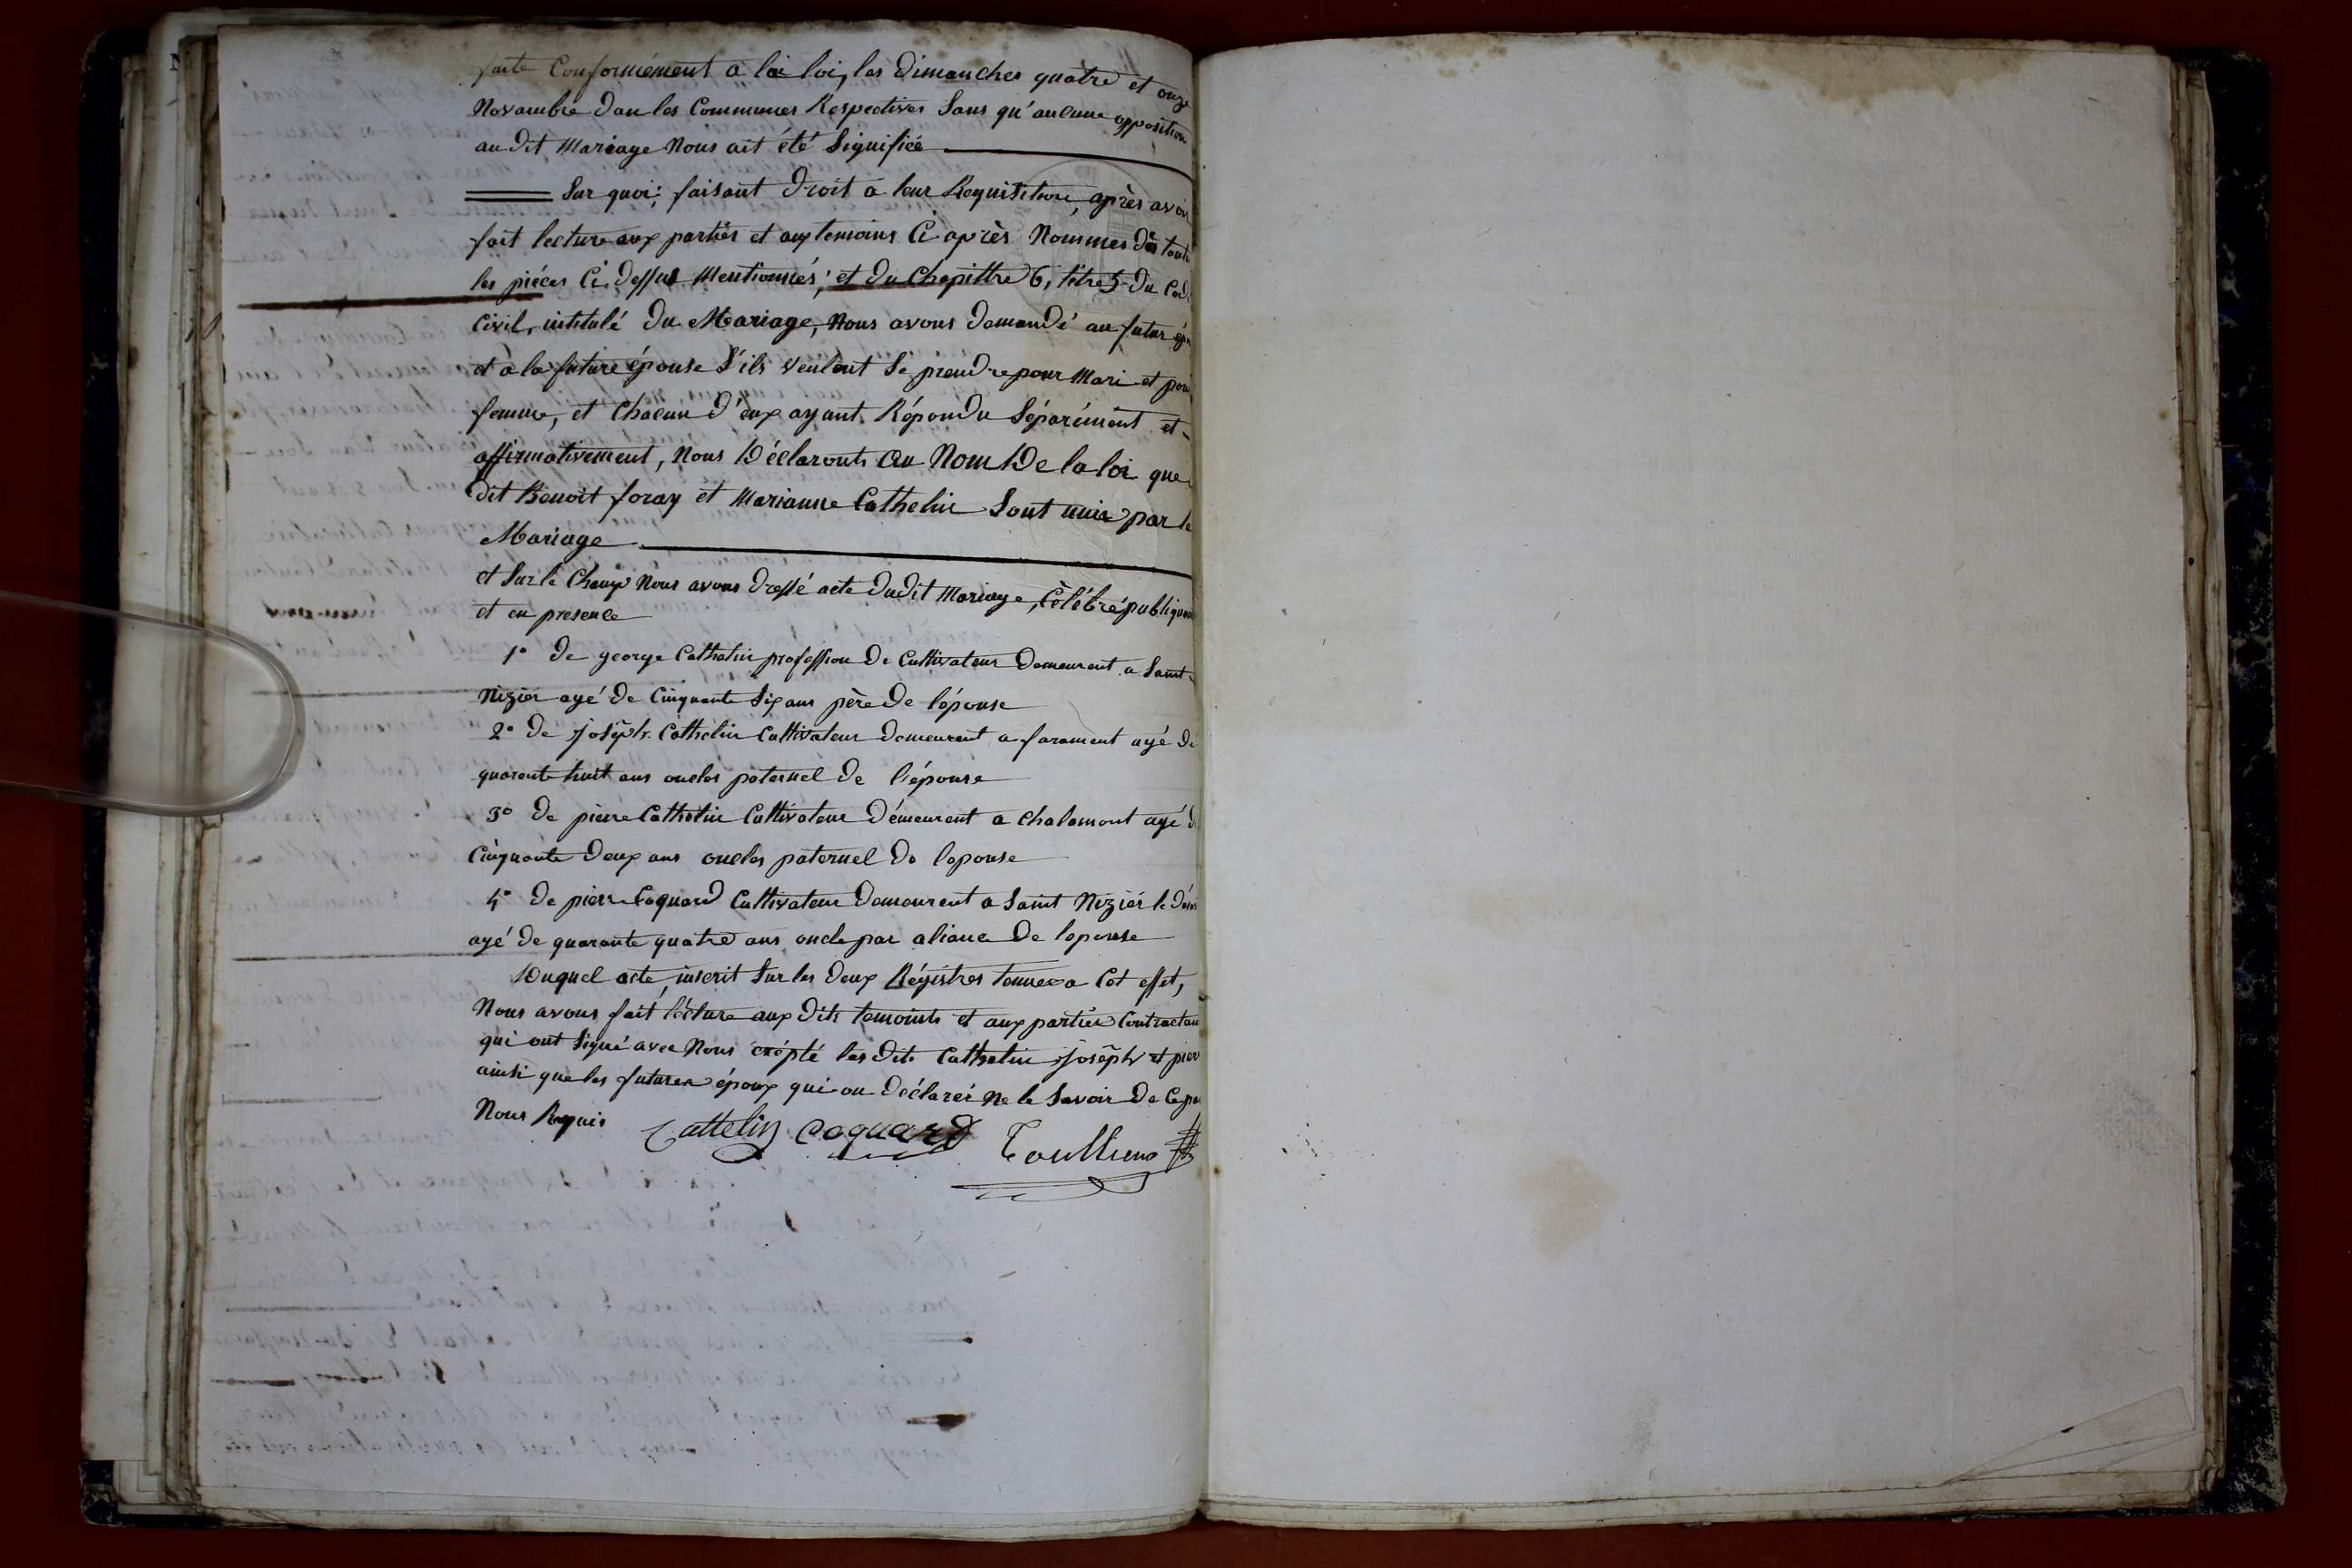 faite Conformément a la loi, les Dimanches quatre et onze
Novambre dan les Communes Respectives Sans qu'aucune opposition
au dit Mariage Nous ait été Signifiée
Sur quoi; faisant Droit a leur Requisition, après avoir
fait lecture aux parties et aux temoins Ci après Nommes dès toute
les piéces Ci dessus Mentionnées; et du Chapittre 6, titre 5 du Cod
Civil, intitulé du Mariage, Nous avons demandé au futur épou
et à la future épouse S'ils veulent Se prendre pour Mari et pour
femme, et Chacun d'eux ayant Répondu Séparément et
affirmativement, Nous Déclaronts au Nom De la loi que
dit Benoit foray et Marianne Cathelin Sont unis par le
Mariage
et Sur le Champ Nous avons dressé acte dudit Mariage, Célébré publiquem
et en presence
1° de george Cathelin profession De Cultivateur Demeurant a Saint
Nizier agé de Cinquante Six ans père De l'épouse
2° de joséph Cathelin Cultivateur demeurent a faramant agé de
quarente huit ans oncles paternel de l'épouse
3° de pierre Cathelin Cultivateur Démeurent a Chalamont agé d
Cinquante Deux ans oncles paternel de lepouse
4° De pierre Coquard Cultivateur Demeurent a Saint Nizier le dése
agé de quarante quatre ans oncle par aliance De lepouse
Duquel acte, inscrit Sur les Deux Régistres tenues a Cet effet,
Nous avons fait lécture aux Dits temoints et aux parties Contractan
qui ont Signé avec Nous exépté les dits Cathelin joséph et pier
ainsi que les futures époux qui on Déclarés ne le Savoir De Ce par
Nous Requis
Cattelin Coquard